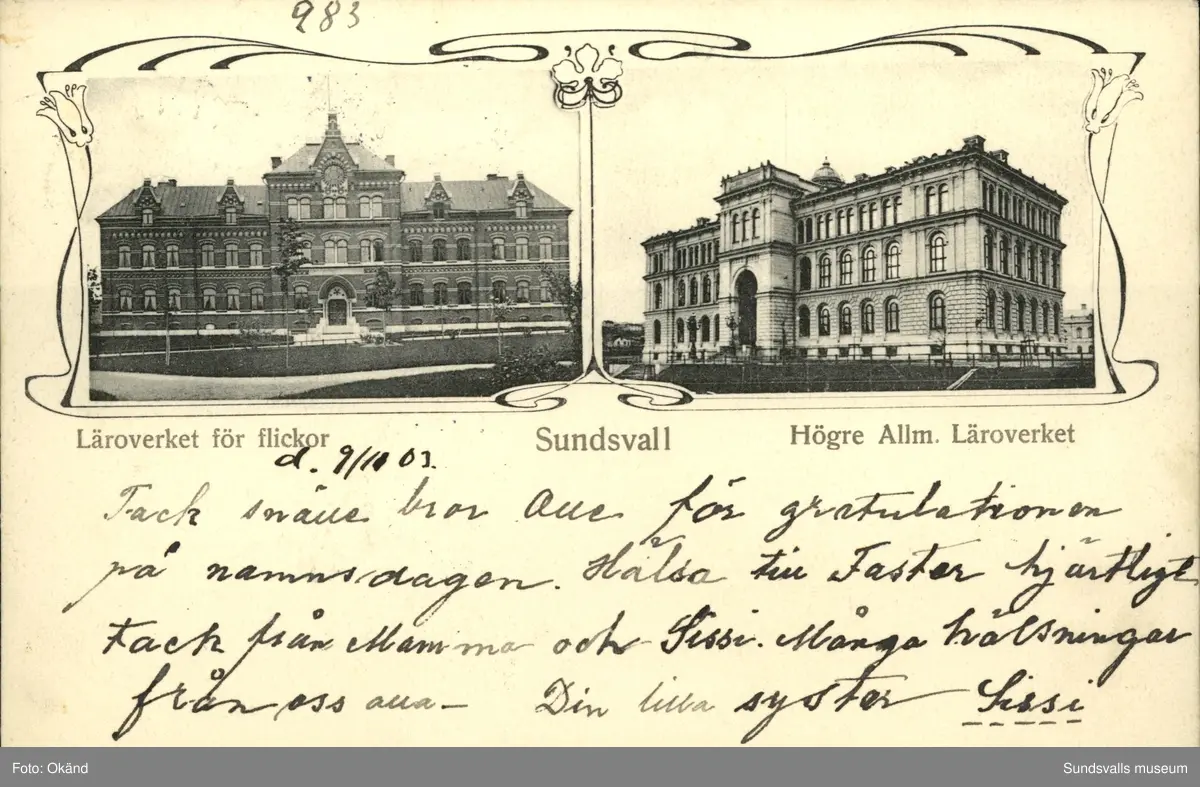 983
Läroverket för flickor
Sundsvall
Högre Allm. Läroverket
d. 9/11 03.
Tack snälle bror Olle för gratulationen
på namnsdagen. Hälsa till Faster hjärtligt
tack från Mamma och Sissi. Många hälsningar
från oss alla – Din lilla syster Sissi
Foto: Okänd
Sundsvalls museum